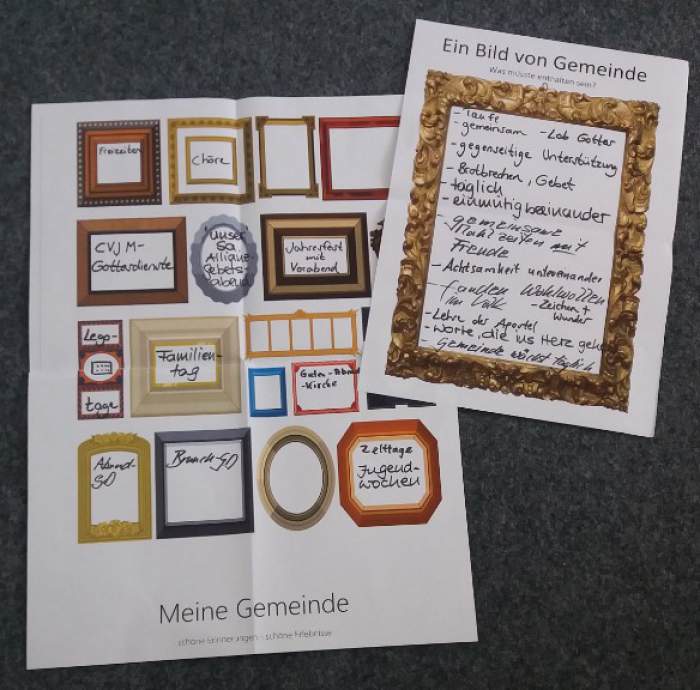 Ein Bild von Gemeinde
Was müsste enthalten sein?
- Taufe
- gemeinsam - Lob Gottes
- gegenseitige Unterstützung
- Brotbrechen, Gebet
- täglich
- einmütig beieinander
- gemeinsame
Mahlzeiten mit
Freude
- Achtsamkeit untereinander
- fanden Wohlwollen
im Volk - Zeichen +
Wunder
- Lehre der Apostel
- Worte, die ins Herz gehen
- Gemeinde wächst täglich
Freizeiten
Chöre
CVJM-
Gottesdienste
"unser"
Sa
Allianz-
Gebets-
abend
Jahresfest
mit
Vorabend
Lego-
tage
Familien-
tag
Guten-Abend
-Kirche
Abend-
GD
Brunch-GD
Zelttage
Jugend-
wochen
Meine Gemeinde
schöne Erinnerungen - schöne Erlebnisse